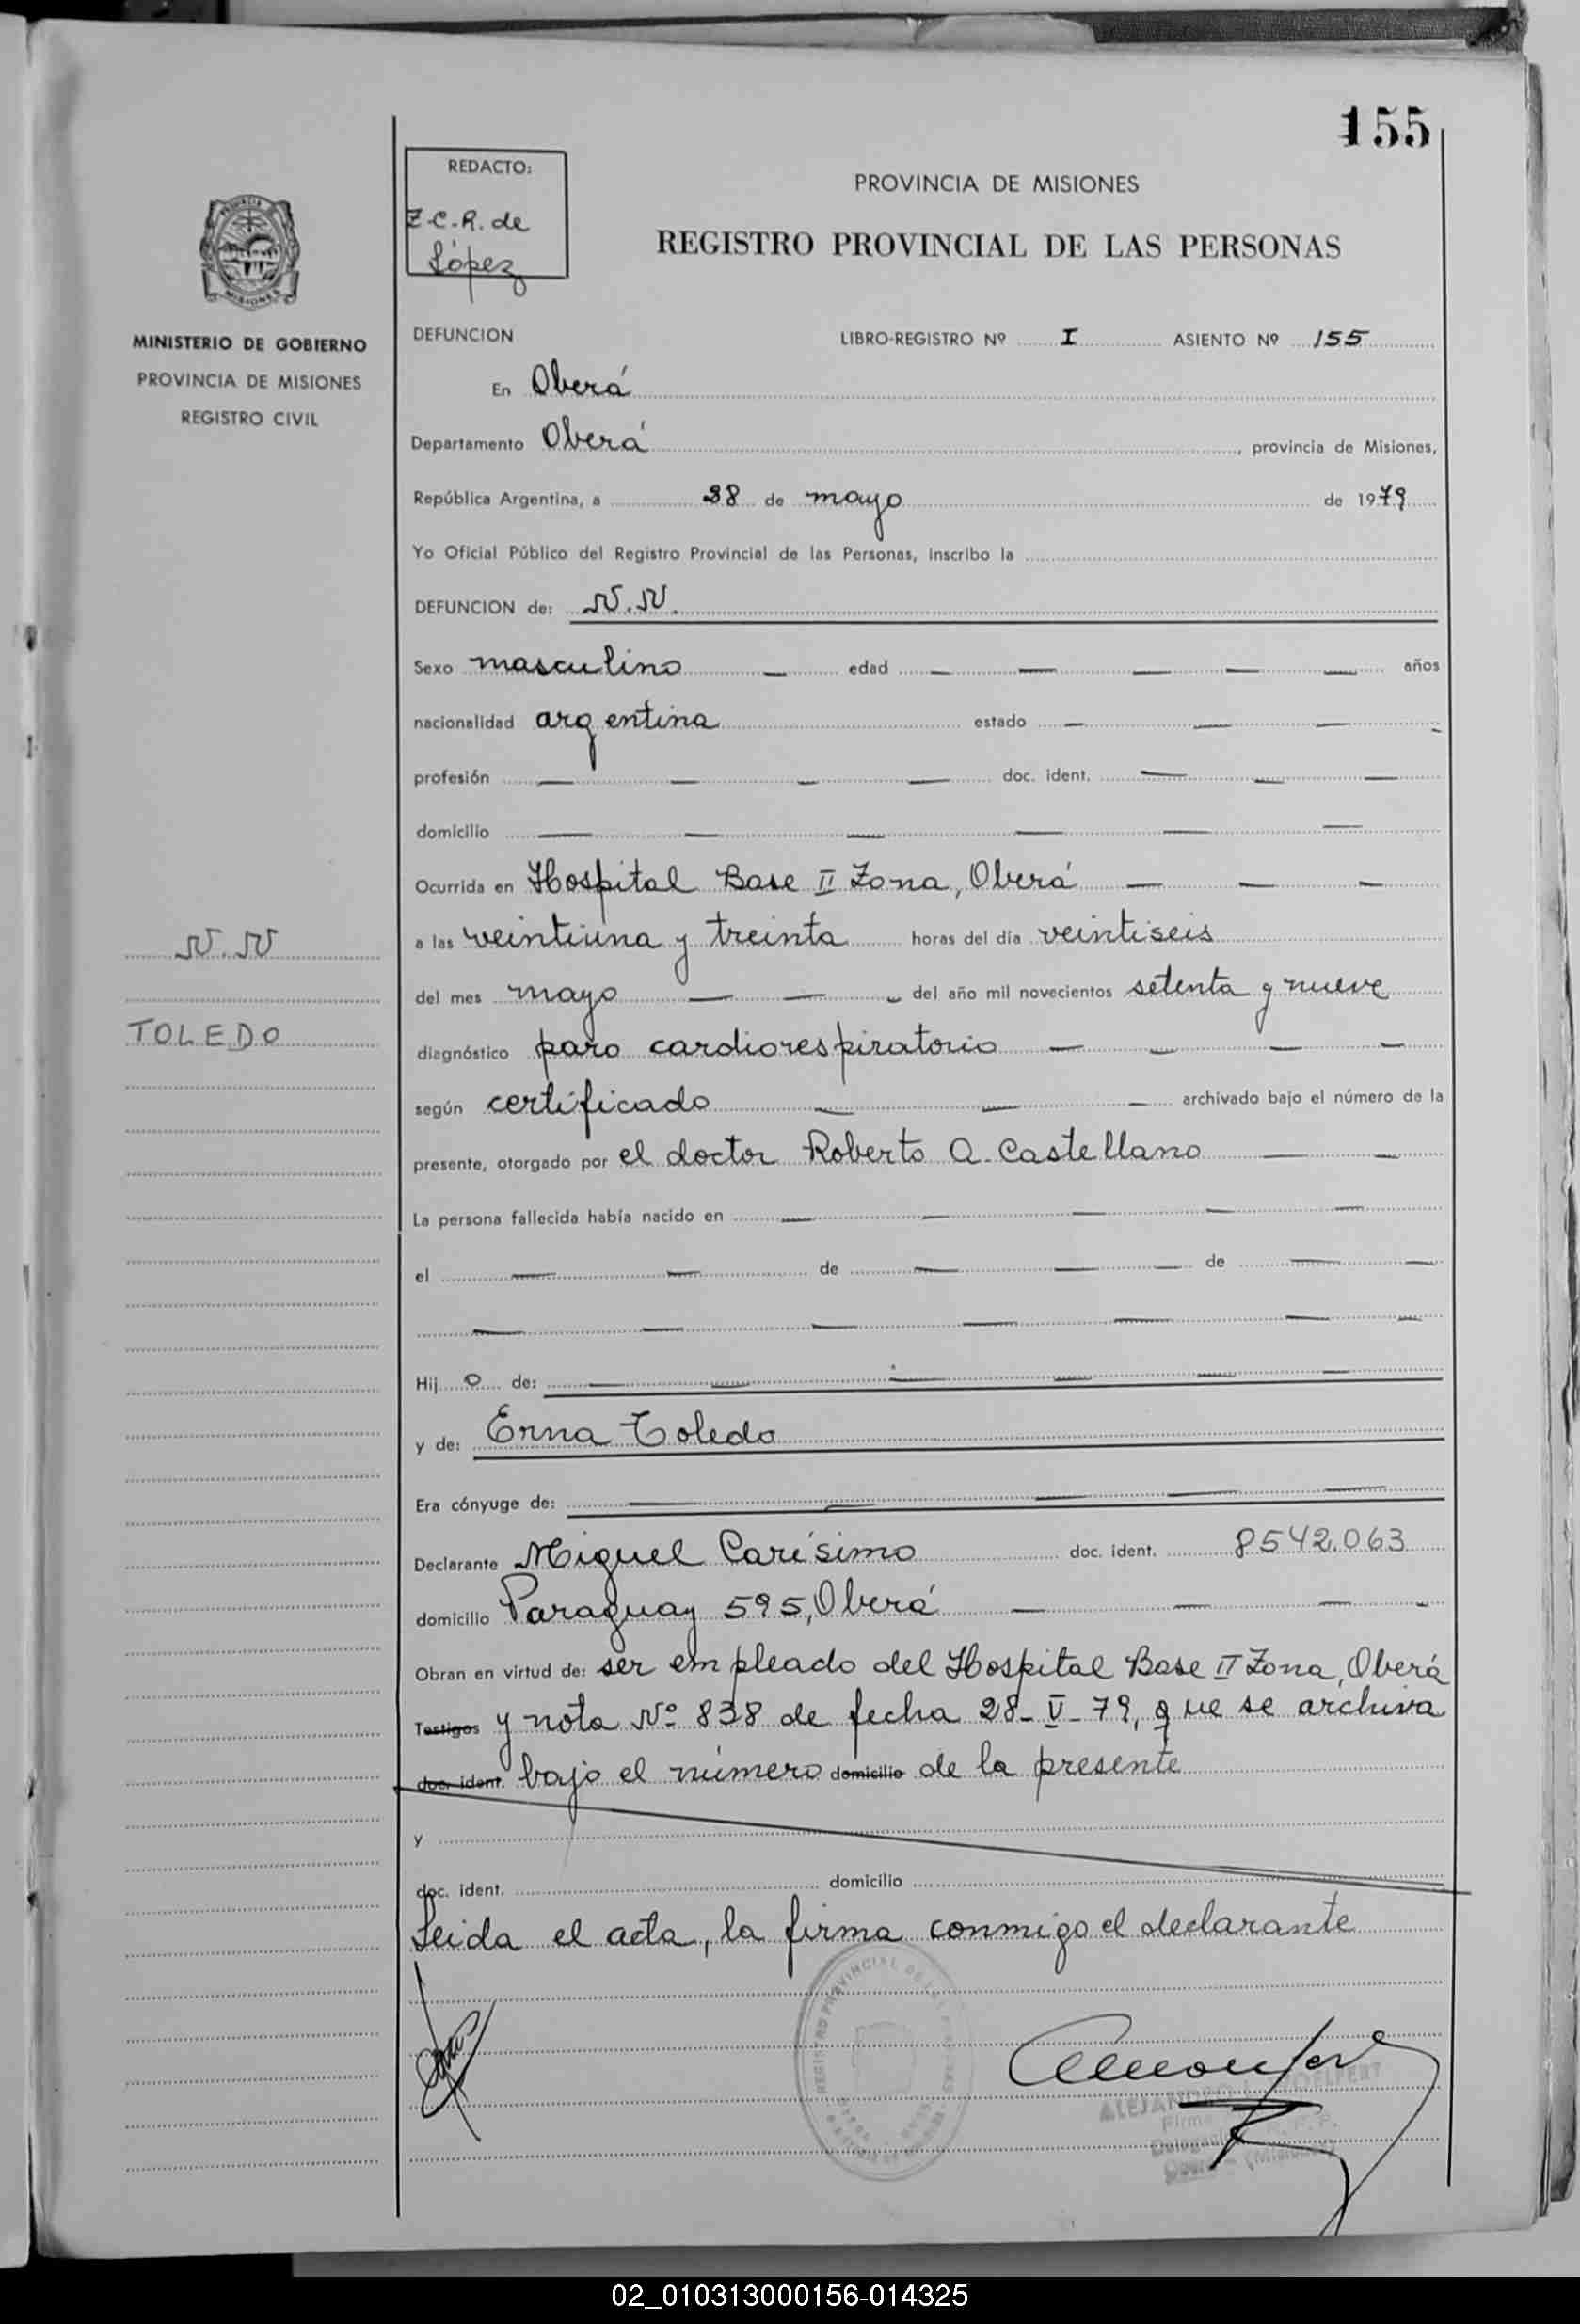 155
REDACTO:
Z.C.R. de
López
PROVINCIA DE MISIONES
REGISTRO PROVINCIAL DE LAS PERSONAS
MINISTERIO DE GOBIERNO
PROVINCIA DE MISIONES
REGISTRO CIVIL
DEFUNCION LIBRO-REGISTRO Nº I ASIENTO Nº 155
En Oberá
Departamento Oberá, provincia de Misiones,
República Argentina, a 28 de mayo de 1979
Yo Oficial Público del Registro Provincial de las Personas, inscribo la
DEFUNCION de: N.N.
Sexo masculino — edad — — — — — años
nacionalidad argentina estado — — — -
profesión — — — — doc. ident. — — —
domicilio — — — — — —
Ocurrida en Hospital Base II Zona, Oberá — — —
N.N
a las veintiuna y treinta horas del día veintiseis
del mes mayo — — - del año mil novecientos setenta y nueve
TOLEDO
diagnóstico paro cardiorespiratorio — — — —
según certificado — — — archivado bajo el número de la
presente, otorgado por el doctor Roberto A. Castellano — —
La persona fallecida había nacido en — — — — —
el — — de — — — de — —
— — — — — — —
Hij o de: — — — — — —
y de: Erna Toledo
Era cónyuge de: — — — — —
Declarante Miguel Carísimo doc. ident. 8542.063
domicilio Paraguay 595, Oberá — — — -
Obran en virtud de: ser empleado del Hospital Base II Zona, Oberá
Testigos y nota Nº 838 de fecha 28-V-79, que se archiva
doc. ident. bajo el número domicilio de la presente
y
doc. ident. domicilio
Leida el acta, la firma conmigo el declarante
REGISTRO PROVINCIAL DE LAS PERSONAS
02_010313000156-014325